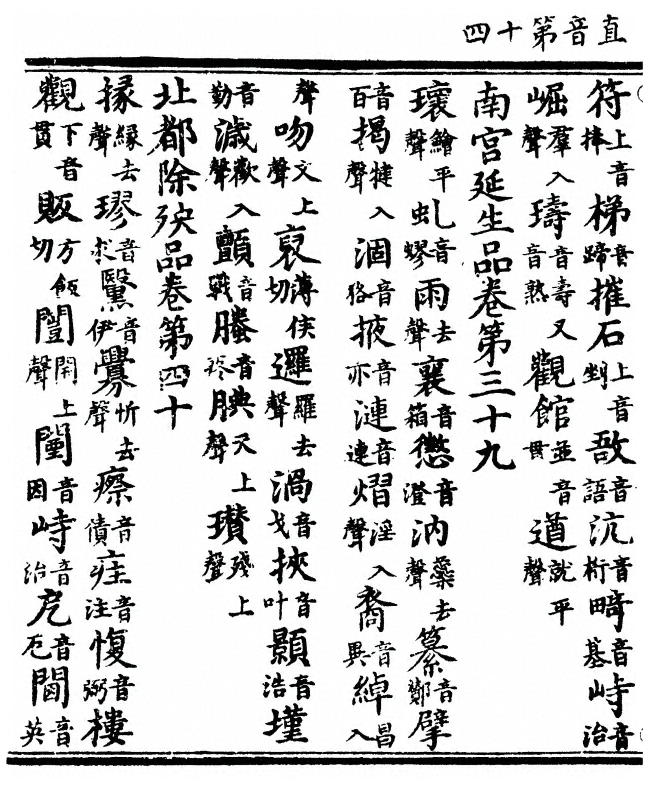 直音第十四
符上音捧梯音蹄摧石上音剉敔音語沆音桁畸音基峙音治
崛羣入聲璹音壽又音熟觀館並音貫遒就平聲
南宮延生品卷第三十九
瓌鱠平聲虬音蟉雨去聲襄音箱懲音澄汭蘂去聲纂音鄼擘
音百揭揵入聲涸音狢掖音亦漣音連熠淫入聲裔音異綽昌入
聲吻文上聲裒薄侯切邏羅去聲渦音戈挾音叶顥音浩墐
音勤濊歡入聲顫音戰螣音疼腆又上聲瓉殘上聲
北都除殃品卷第四十
掾緣去聲璆音求毉音伊釁忻去聲瘵音債疰音注愎音弼摟
觀下音貫販方飯切闓開上聲闉音因峙音治戹音厄音英